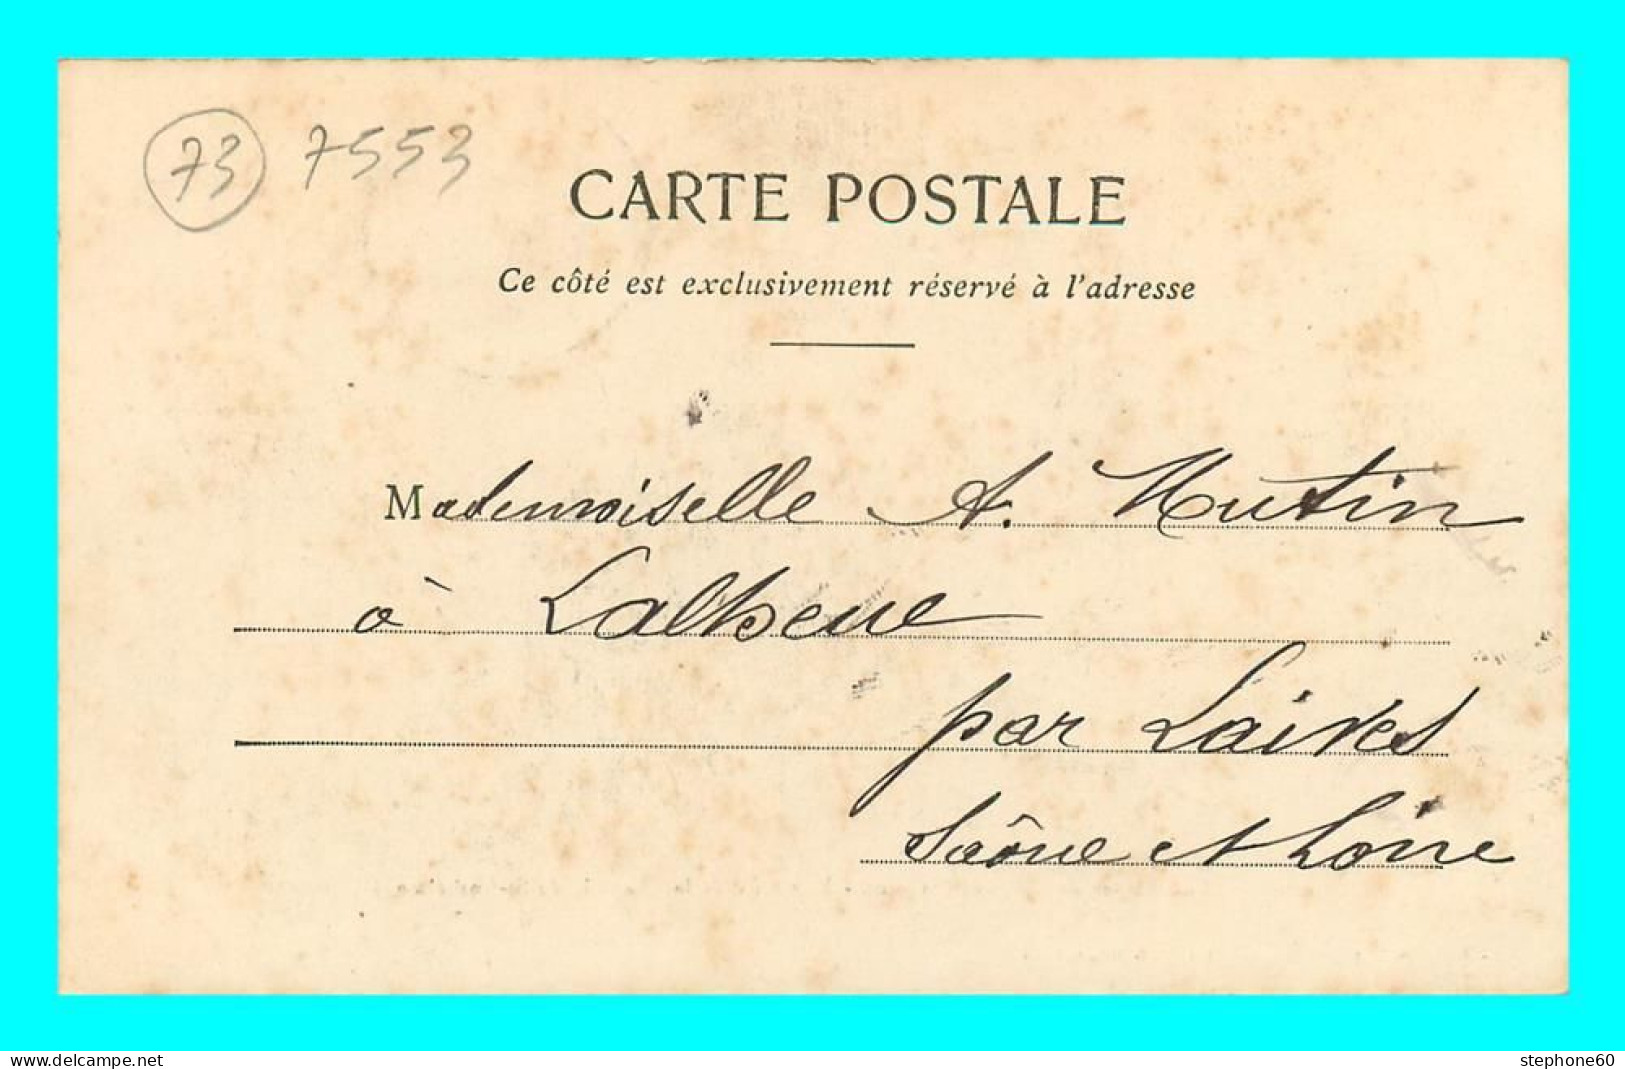 73 7553
CARTE POSTALE
Ce côté est exclusivement réservé à l'adresse
Mademoiselle A. Mutin
à Lalheue
par Laives
Saône et Loire
www.delcampe.net
stephone60